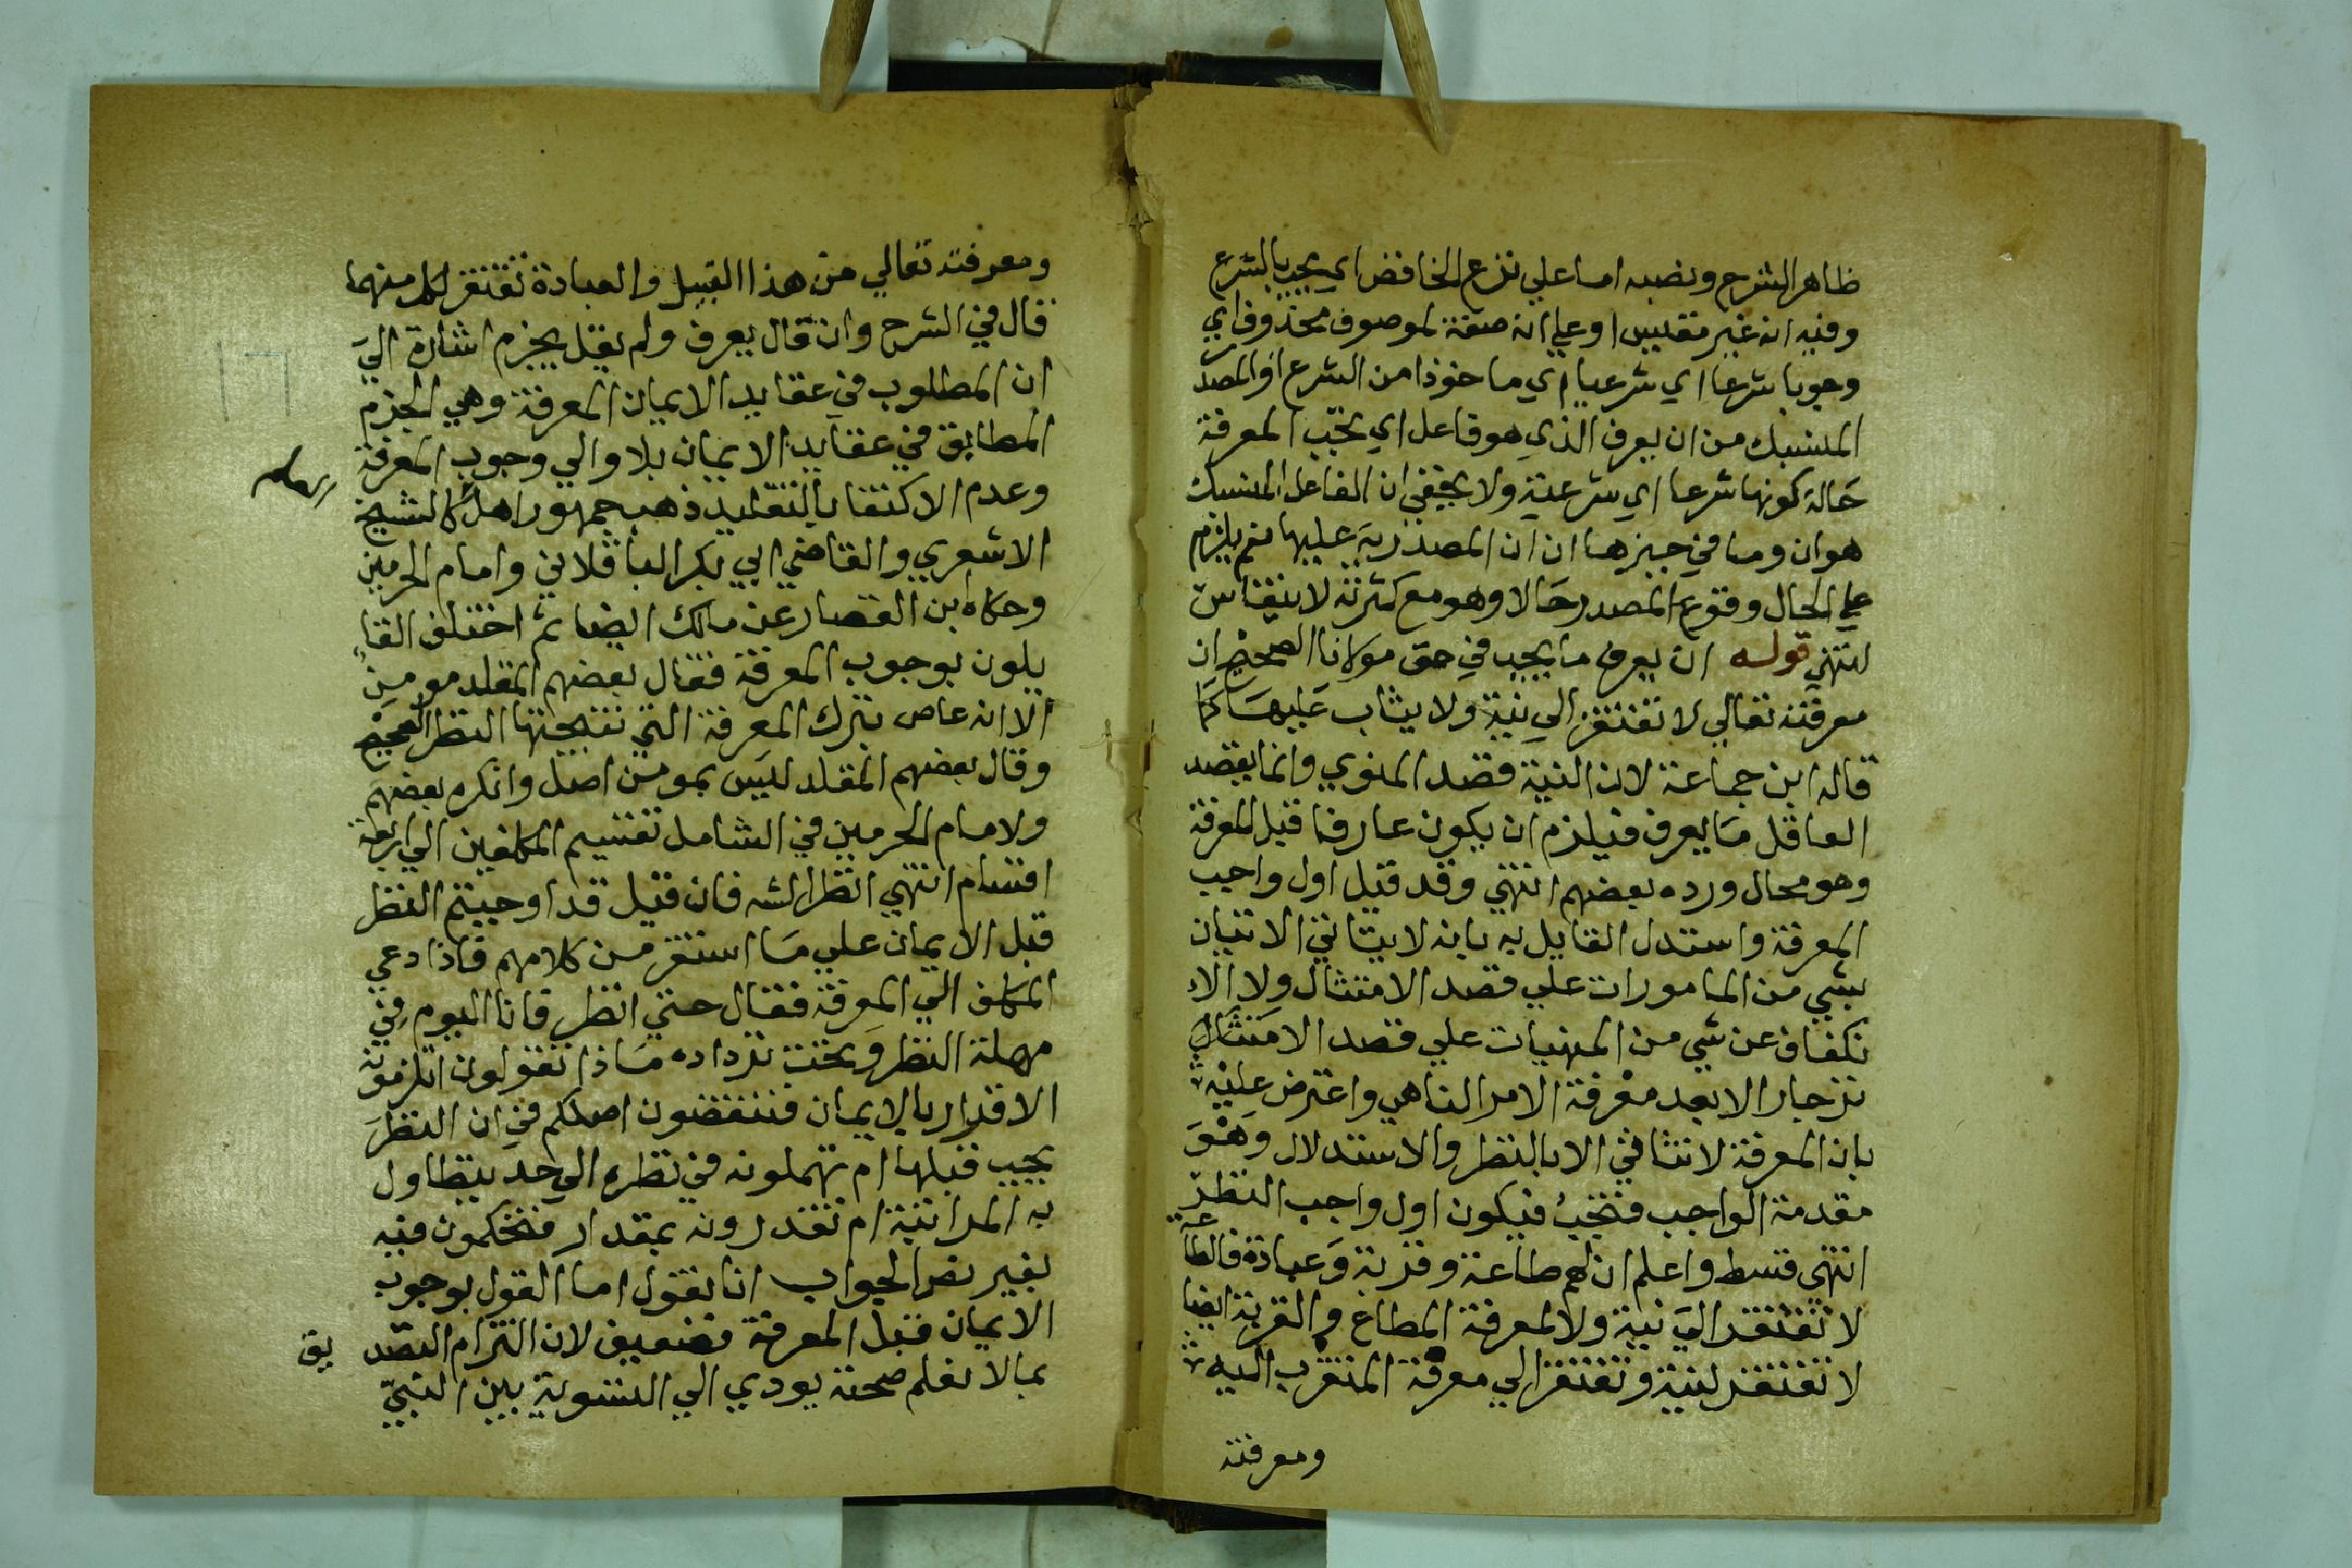 ظاهر الشرح ونصبه اما علي نزع الخافض اي يجب بالشرع
وفيه انه غير مقيس او علي انه صفة لموصوف محذوف اي
وجوبا شرعا اي شرعيا اي ماخوذا من الشرع او المصدر
المنسبك من ان يعرف الذي هو فاعل اي يجب المعرفة
حالة كونها شرعا اي شرعية ولا يخفي ان الفاعل المنسبك
هو ان وما في حيزها ان ان المصدرية عليها نعم يلزم
علي الحال وقوع المصدر حالا وهو مع كثرته لا ينقاس
انتهي قوله ان يعرف ما يجب في حق مولانا الصحيح ان
معرفته تعالي لا تفتقر الي نية ولا يثاب عليها كما
قاله ابن جماعة لان النية قصد المنوي وانما يقصد
العاقل ما يعرف فيلزم ان يكون عارفا قبل المعرفة
وهو محال ورده بعضهم انتهي وقد قيل اول واجب
المعرفة واستدل القايل به بانه لا يتاتي الاتيان
بشي من المامورات علي قصد الامتثال ولا الا
نكفاف عن شي من المنهيات علي قصد الامتثال
نزجار الا بعد معرفة الامر الناهي واعترض عليه
بان المعرفة لا تتاتي الا بالنظر والاستدلال وهو
مقدمة الواجب فتجب فيكون اول واجب النظر
انتهي قسط واعلم ان لهم طاعة وقربة وعبادة فالطاعة
لا تفتقر الي نية ولا لمعرفة المطاع والقربة ايضا
لا تفتقر لنية وتفتقر الي معرفة المتقرب اليه
ومعرفته
ومعرفته تعالي من هذا القبيل والعبادة تفتقر لكل منهما
قال في الشرح وان قال يعرف ولم يقل يجزم اشارة الي
ان المطلوب في عقايد الايمان المعرفة وهي الجزم
المطابق في عقايد الايمان بلا والي وجوب المعرفة
وعدم الاكتفا بالتقليد ذهب جمهور اهل كالشيخ
الاشعري والقاضي ابي بكر الباقلاني وامام الحرمين
وحكاه ابن القصار عن مالك ايضا ثم اختلف القا
يلون بوجوب المعرفة فقال بعضهم المقلد مومن
الا انه عاص بترك المعرفة التي نتيجتها النظر الصحيح
وقال بعضهم المقلد ليس بمومن اصل وانكره بعضهم
ولامام الحرمين في الشامل تقسيم المكلفين الي اربعة
اقسام انتهي انظر الشه فان قيل قد اوجبتم النظر
قبل الايمان علي ما استقر من كلامهم فاذا دعي
المكلف الي المعرفة فقال حتي انظر فانا اليوم في
مهلة النظر وتحت ترداده ماذا تقولون اتلزمونه
الاقرار بالايمان فتنقضون اصلكم في ان النظر
يجب قبلها ام تمهلونه في نظره الي حد يتطاول
به المدا نية ام تقدرونه بمقدار فتحكمون فيه
بغير نص الجواب انا نقول اما القول بوجوب
الايمان قبل المعرفة فضعيف لان التزام التصد يق
بما لا نعلم صحته يودي الي التسوية بين النبي